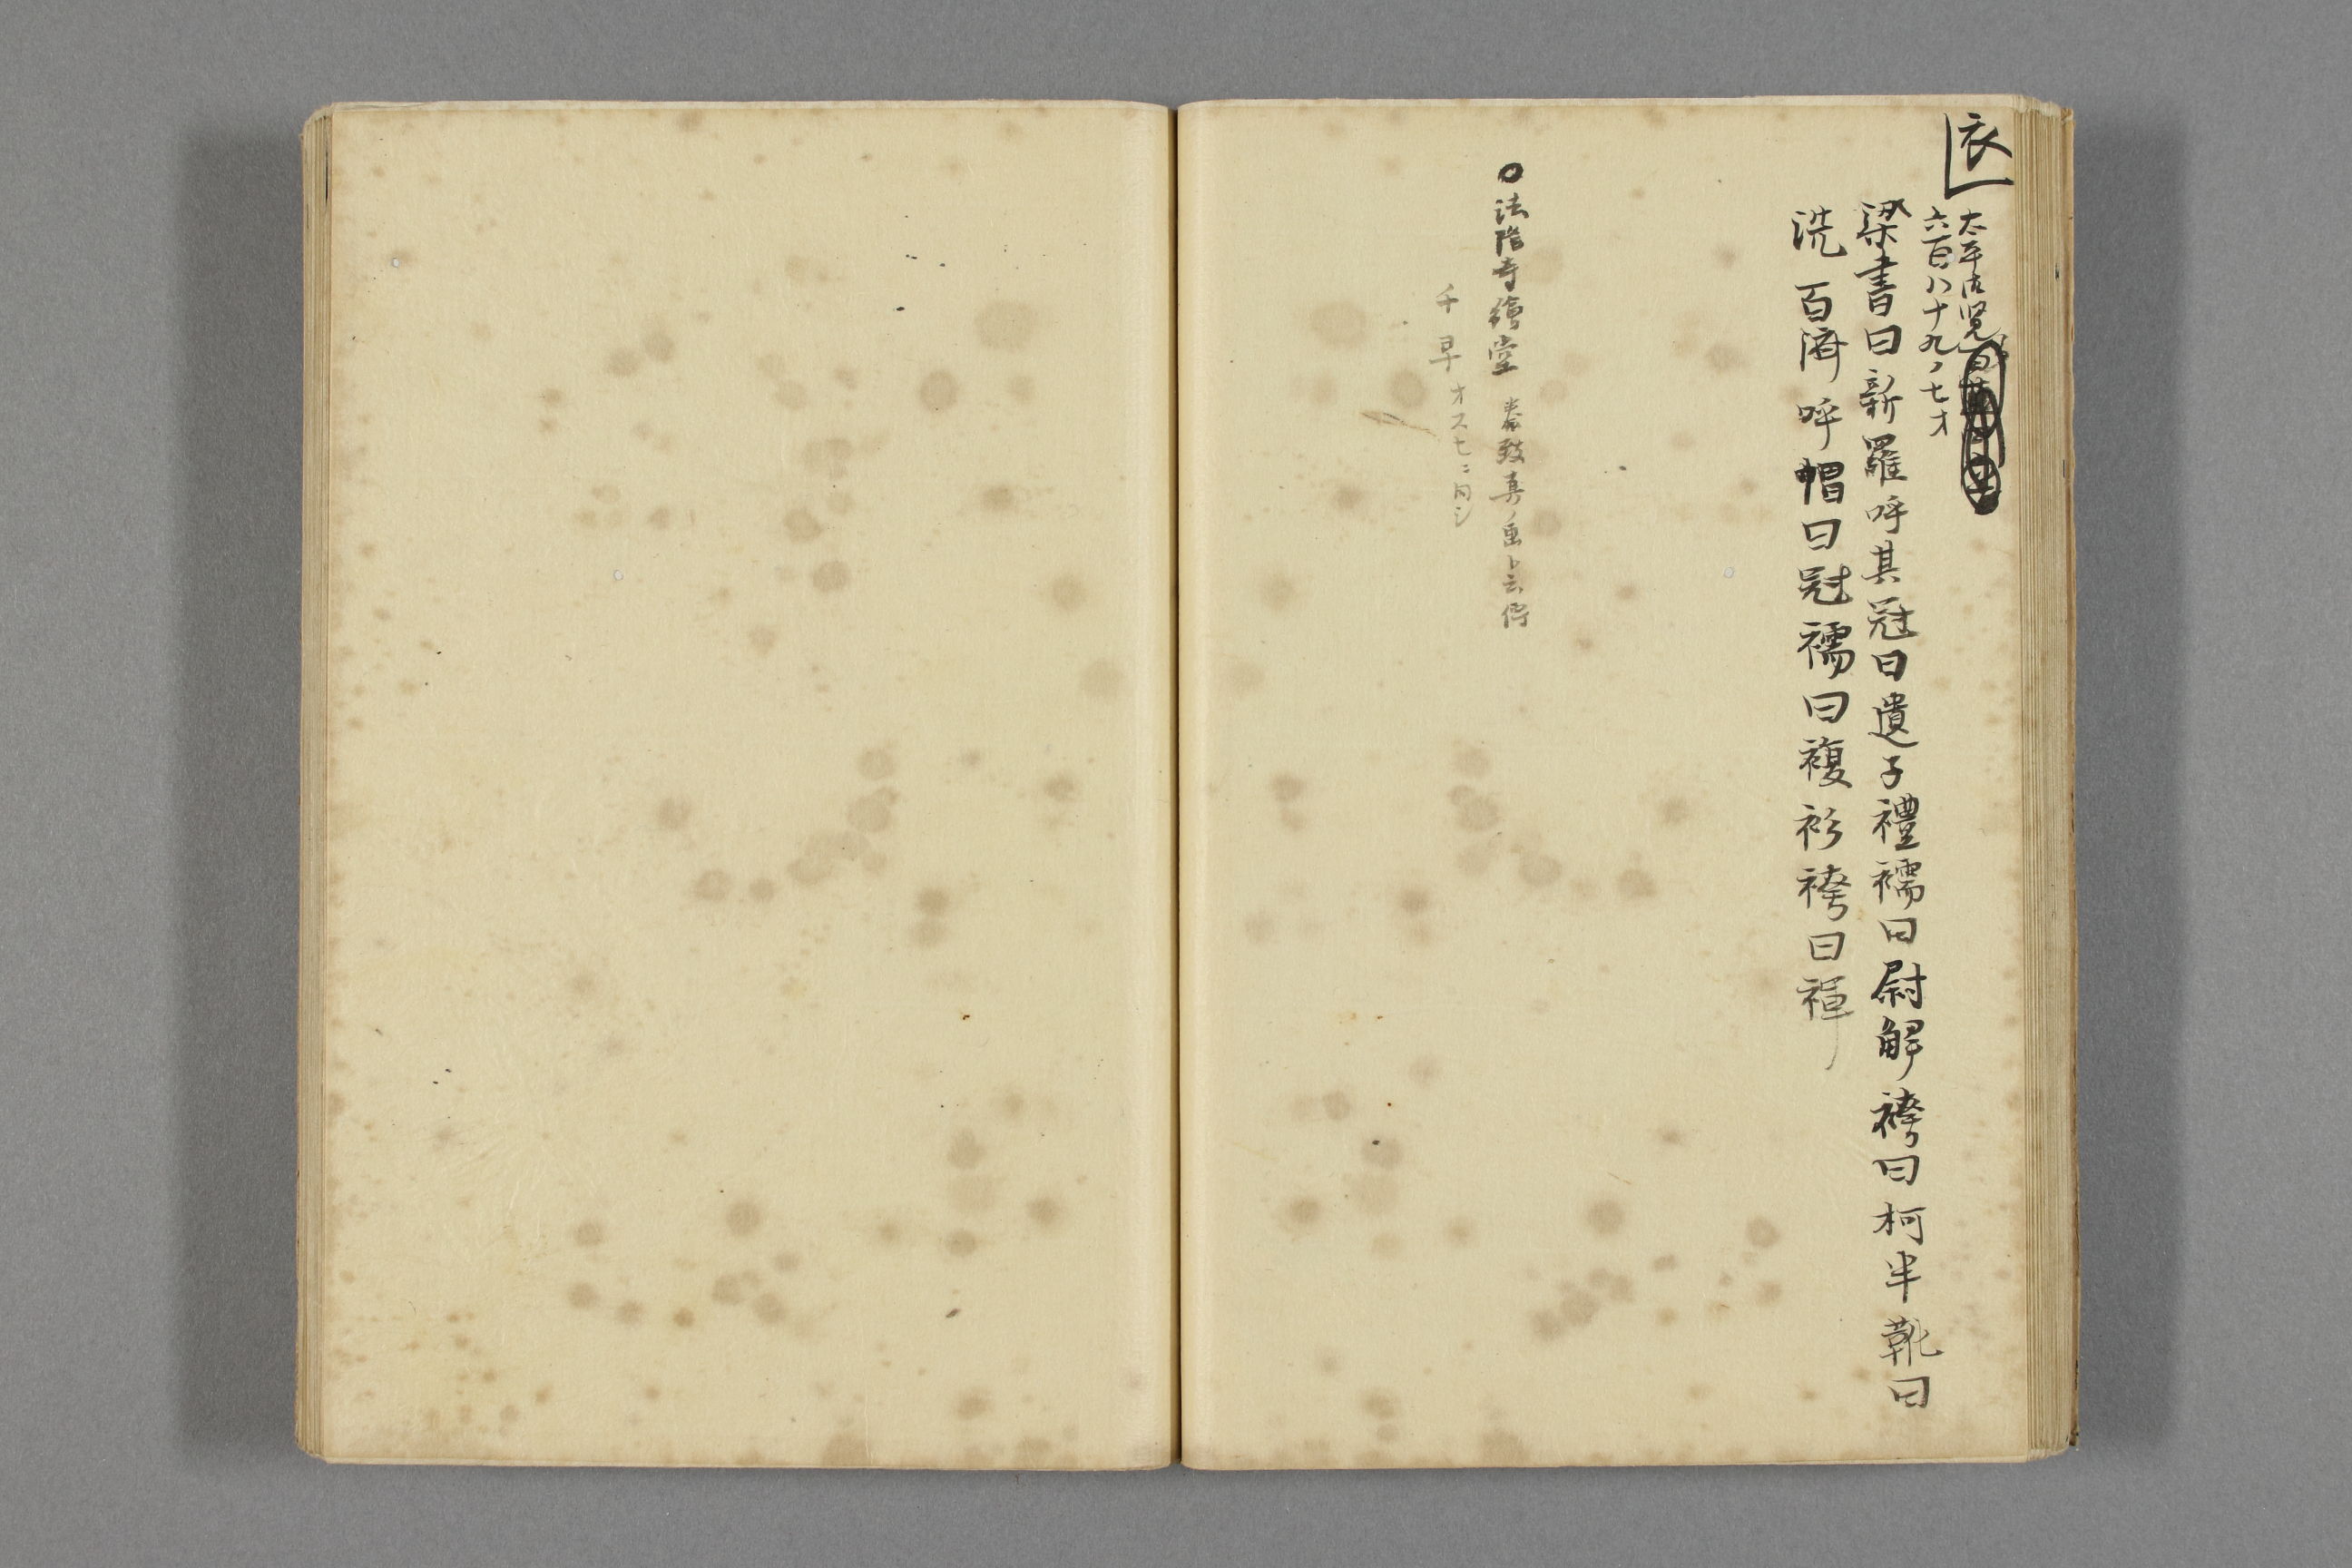 衣
太平御覧
六百八十九ノ七オ
梁書曰新羅呼其冠曰遺子禮襦曰尉解袴曰柯半靴曰
洗百済呼帽曰冠襦曰複衫袴曰褌
○法隆寺繪堂 秦致真ノ画ト云傳
千早オスヒニ同シ